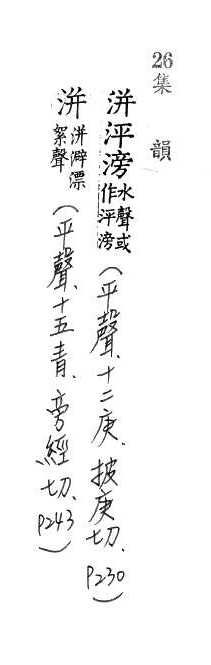 26集韻
洴泙滂水聲或作泙滂(平聲、十二庚、披庚切、P230)
洴洴澼漂絮聲(平聲、十五青、旁經切、P243)